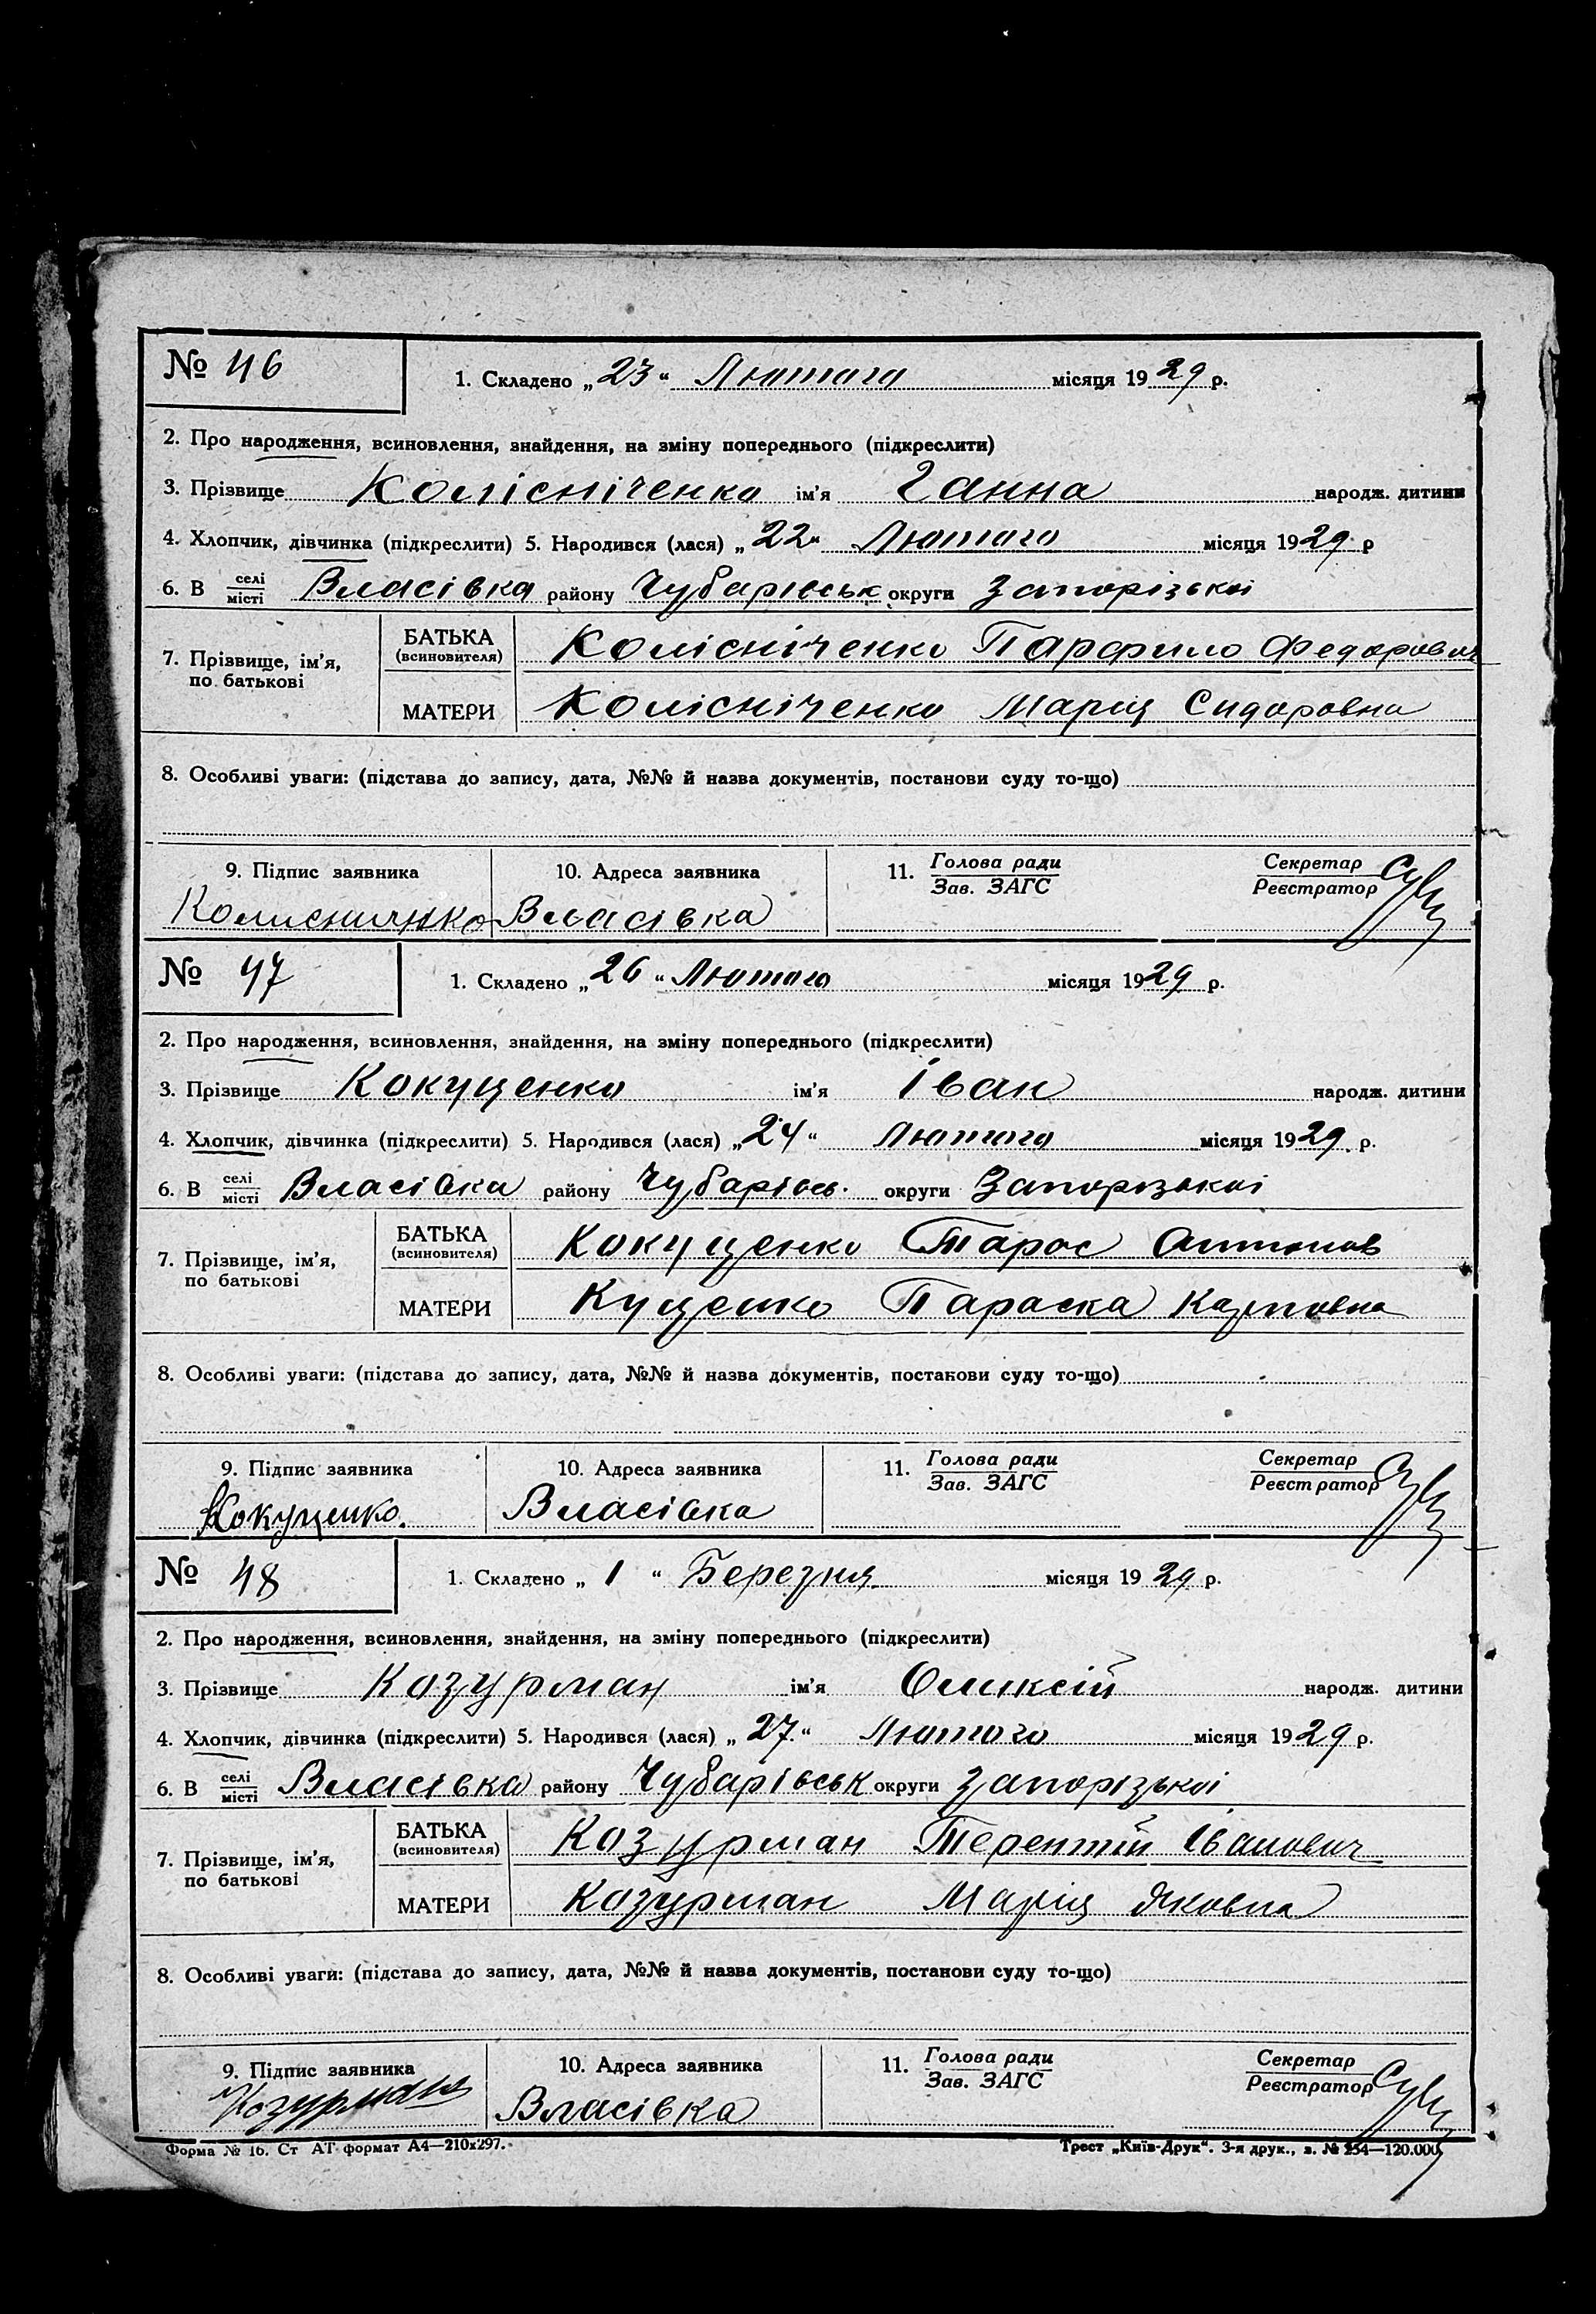 № 46
1. Складено „23“ Лютого місяця 1929 р.
2. Про народження, всиновлення, знайдення, на зміну попереднього (підкреслити)
3. Прізвище Колісніченко ім'я Ганна народж. дитини
4. Хлопчик, дівчинка (підкреслити) 5. Народився (лася) „22“ Лютого місяця 1929 р
6. В селі місті Власівка району Чубарівськ округи Запорізької
7. Прізвище, ім'я, по батькові
БАТЬКА (всиновителя) Колісніченко Парфило Федорович
МАТЕРИ Колісніченко Марія Сидоровна
8. Особливі уваги: (підстава до запису, дата, №№ й назва документів, постанови суду то-що)
9. Підпис заявника 10. Адреса заявника 11. Голова ради Секретар
Зав. ЗАГС Реєстратор
Власівка
№ 47
1. Складено „26“ Лютого місяця 1929 р.
2. Про народження, всиновлення, знайдення, на зміну попереднього (підкреслити)
3. Прізвище Кокуценко ім'я Іван народж. дитини
4. Хлопчик, дівчинка (підкреслити) 5. Народився (лася) „24“ Лютого місяця 1929 р.
6. В селі місті Власівка району Чубарівсь. округи Запорізької
7. Прізвище, ім'я, по батькові
БАТЬКА (всиновителя) Кокуценко Тарас Антонов
МАТЕРИ Куценко Параска
8. Особливі уваги: (підстава до запису, дата, №№ й назва документів, постанови суду то-що)
9. Підпис заявника 10. Адреса заявника 11. Голова ради Секретар
Зав. ЗАГС Реєстратор
Кокуценко. Власівка
№ 48
1. Складено „1“ Березня місяця 1929 р.
2. Про народження, всиновлення, знайдення, на зміну попереднього (підкреслити)
3. Прізвище Козурман ім'я Оликсій народж. дитини
4. Хлопчик, дівчинка (підкреслити) 5. Народився (лася) „27.“ Лютого місяця 1929 р.
6. В селі місті Власівка району Чубарівськ округи Запорізької
7. Прізвище, ім'я, по батькові
БАТЬКА (всиновителя) Козурман Терентій Іванович
МАТЕРИ Козурман Марія Яковна
8. Особливі уваги: (підстава до запису, дата, №№ й назва документів, постанови суду то-що)
9. Підпис заявника 10. Адреса заявника 11. Голова ради Секретар
Зав. ЗАГС Реєстратор
Козурман Власівка
Форма № 16. Ст АТ формат А4—210x297. Трест „Київ-Друк“. 3-я друк., з. № 254—120.000